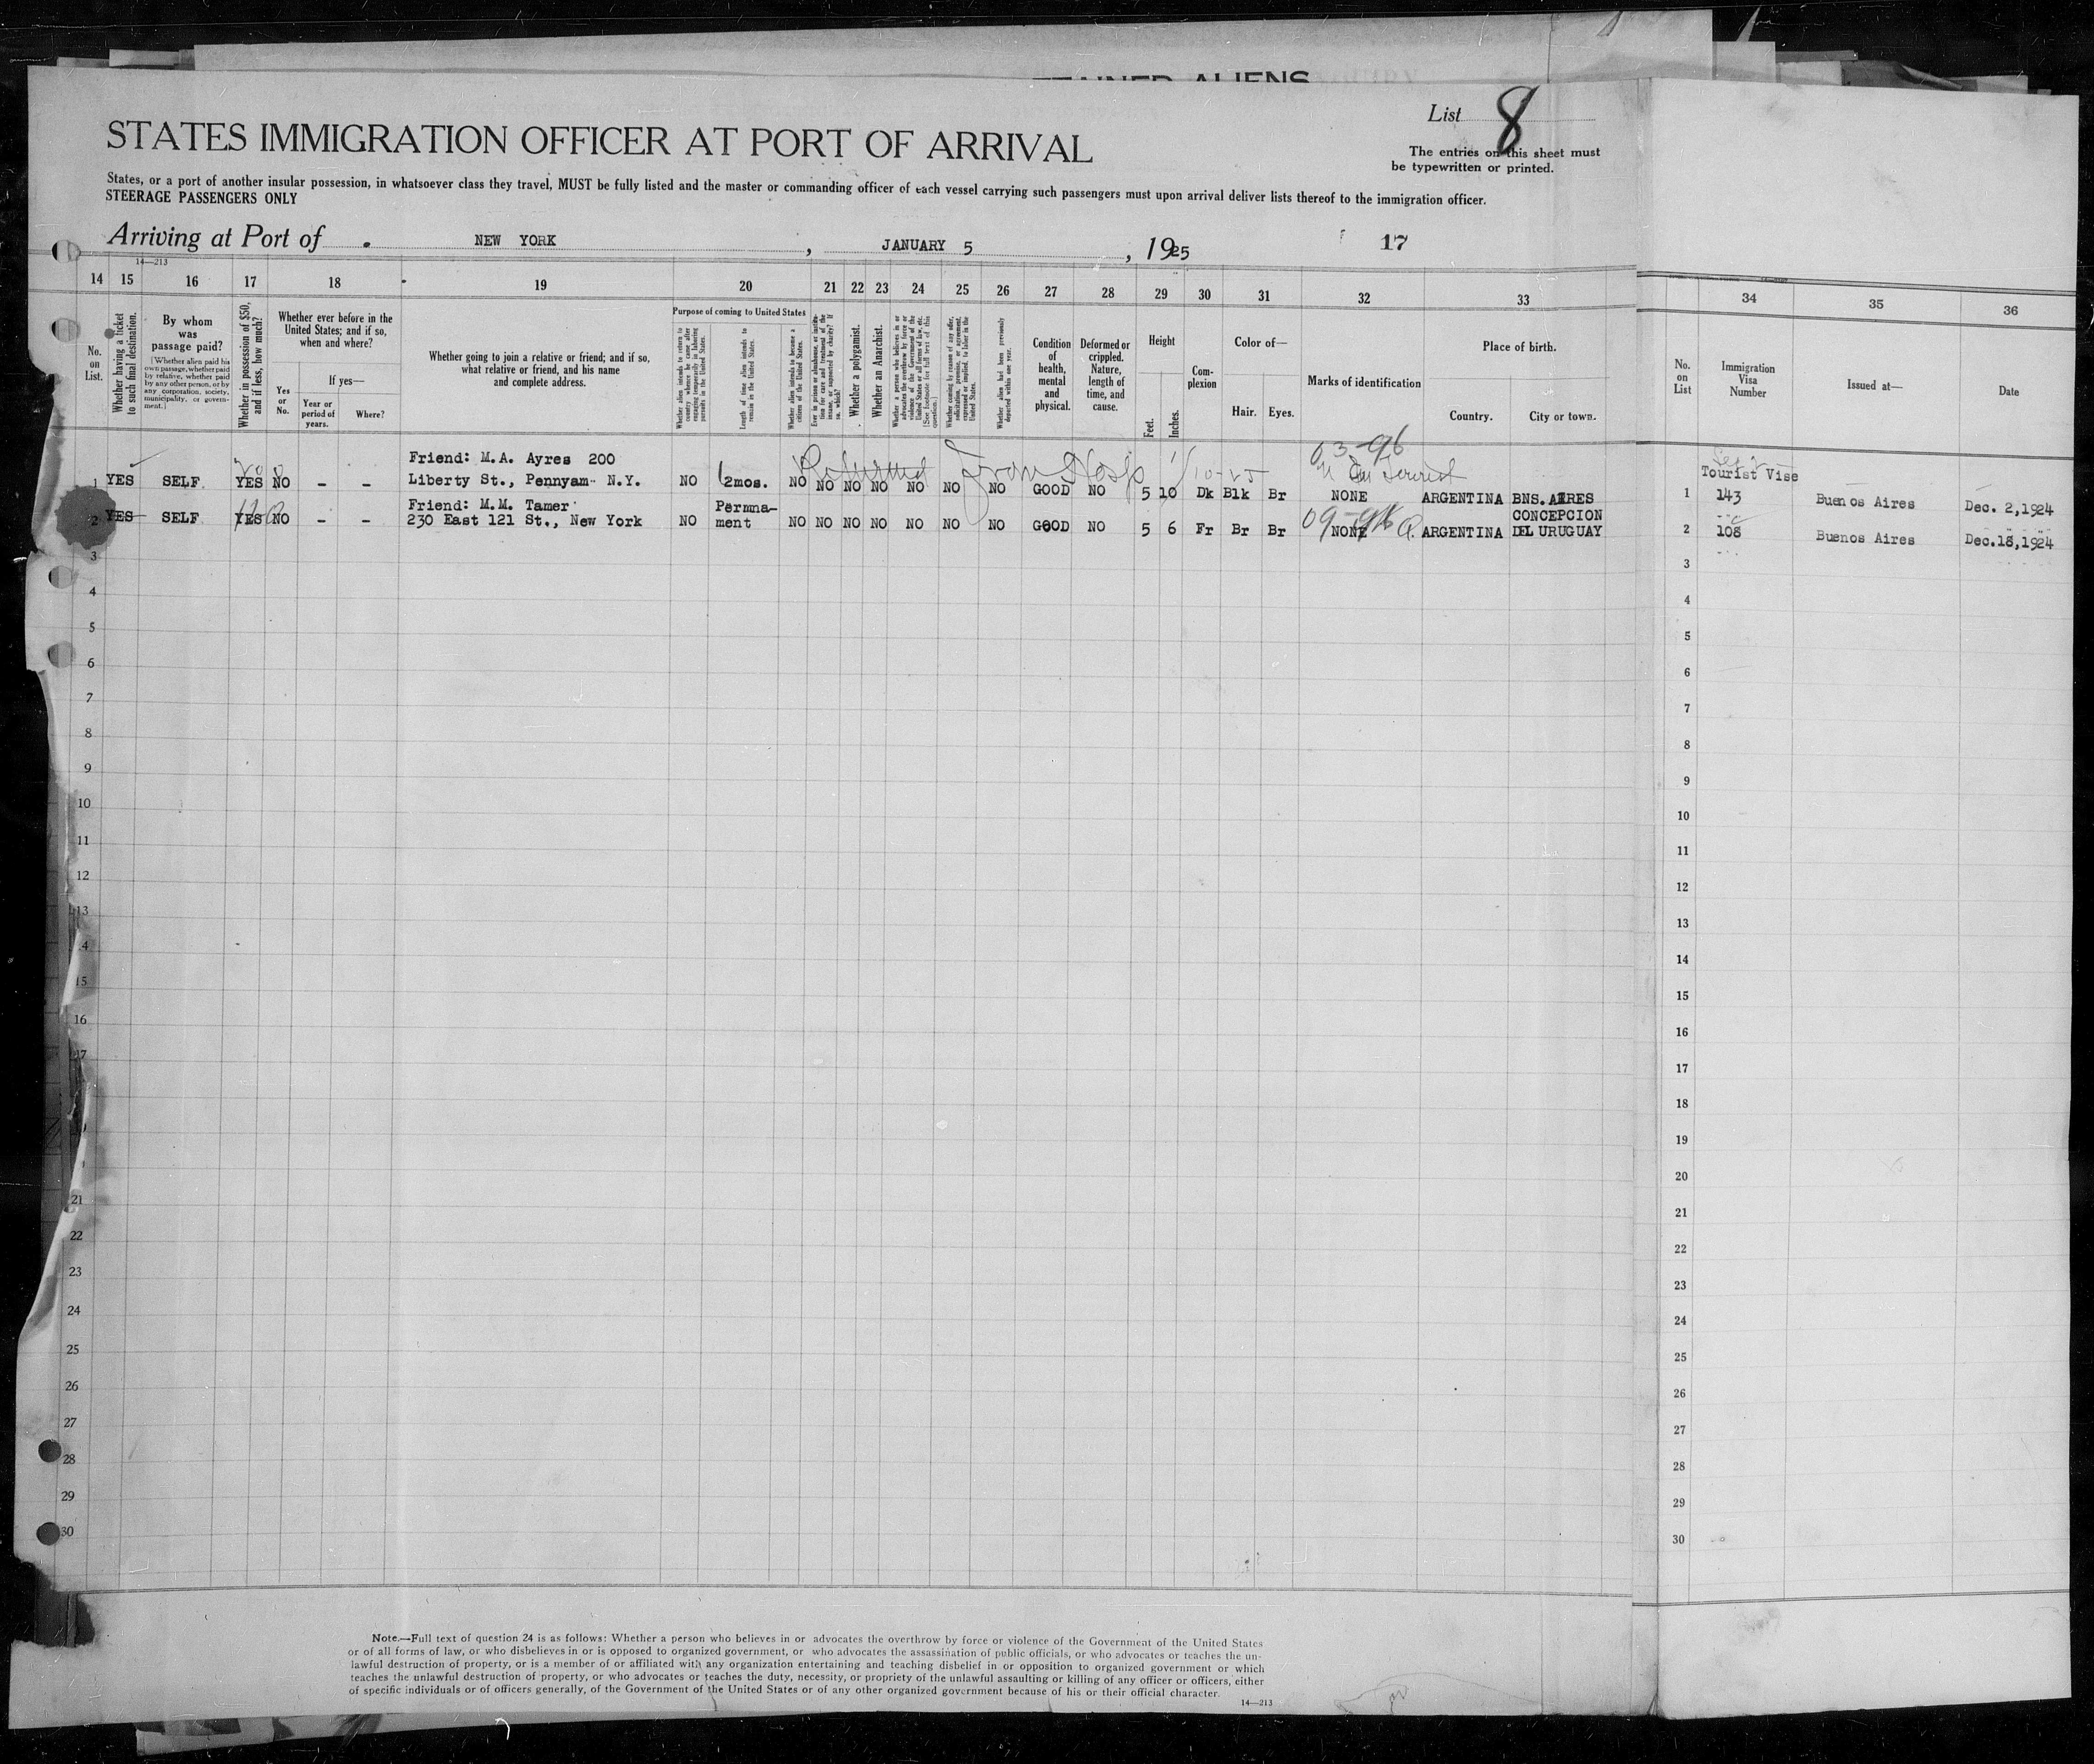 TAINED ALIENS
List 8
STATES IMMIGRATION OFFICER AT PORT OF ARRIVAL
The entries on this sheet must
be typewritten or printed.
States, or a port of another insular possession, in whatsoever class they travel, MUST be fully listed and the master or commanding officer of each vessel carrying such passengers must upon arrival deliver lists thereof to the immigration officer.
STEERAGE PASSENGERS ONLY
Arriving at Port of NEW YORK, JANUARY 5, 1925
17
14—213
14 15 16 17 18 19 20 21 22 23 24 25 26 27 28 29 30 31 32 33 34 35 36
No. on List.
Whether having a ticket to such final destination.
By whom was passage paid?
(Whether alien paid his own passage, whether paid by relative, whether paid by any other person, or by any corporation, society, municipality, or government.)
Whether in possession of $50, and if less, how much?
Whether ever before in the United States; and if so, when and where?
Yes or No.
If yes—
Year or period of years.
Where?
Whether going to join a relative or friend; and if so, what relative or friend, and his name and complete address.
Purpose of coming to United States
Whether alien intends to return to country whence he came after engaging temporarily in laboring pursuits in the United States.
Length of time alien intends to remain in the United States.
Whether alien intends to become a citizen of the United States.
Ever in prison or almshouse, or institution for care and treatment of the insane, or supported by charity? If so, which?
Whether a polygamist.
Whether an Anarchist.
Whether a person who believes in or advocates the overthrow by force or violence of the Government of the United States or all forms of law, etc. (See footnote for full text of this question.)
Whether coming by reason of any offer, solicitation, promise, or agreement, expressed or implied, to labor in the United States.
Whether alien had been previously deported within one year.
Condition of health, mental and physical.
Deformed or crippled. Nature, length of time, and cause.
Height
Feet.
Inches.
Complexion
Color of—
Hair.
Eyes.
Marks of identification
Place of birth.
Country.
City or town.
No. on List
Immigration Visa Number
Issued at—
Date
Returned From Hosp 1/10-25
03-96
Tourist
Friend: M.A. Ayres 200
Tourist Vise
1 YES SELF YES NO – – Liberty St., Pennyam- N.Y. NO 2mos. NO NO NO NO NO NO NO GOOD NO 5 10 Dk Blk Br NONE ARGENTINA BNS. AIRES 1 143 Buenos Aires Dec. 2,1924
Friend: M.M. Tamer Permna- CONCEPCION
09-96
2 YES SELF YES NO – – 230 East 121 St., New York NO ment NO NO NO NO NO NO NO GOOD NO 5 6 Fr Br Br NONE ARGENTINA DEL URUGUAY 2 108 Buenos Aires Dec.18,1924
3 3
4 4
5 5
6 6
7 7
8 8
9 9
10 10
11 11
12 12
13 13
4 14
15 15
16 16
17 17
18
19
20
21 21
22 22
23 23
24 24
25 25
26 26
27 27
28 28
29 29
30 30
Note.—Full text of question 24 is as follows: Whether a person who believes in or advocates the overthrow by force or violence of the Government of the United States
or of all forms of law, or who disbelieves in or is opposed to organized government, or who advocates the assassination of public officials, or who advocates or teaches the un-
lawful destruction of property, or is a member of or affiliated with any organization entertaining and teaching disbelief in or opposition to organized government or which
teaches the unlawful destruction of property, or who advocates or teaches the duty, necessity, or propriety of the unlawful assaulting or killing of any officer or officers, either
of specific individuals or of officers generally, of the Government of the United States or of any other organized government because of his or their official character.
14—213